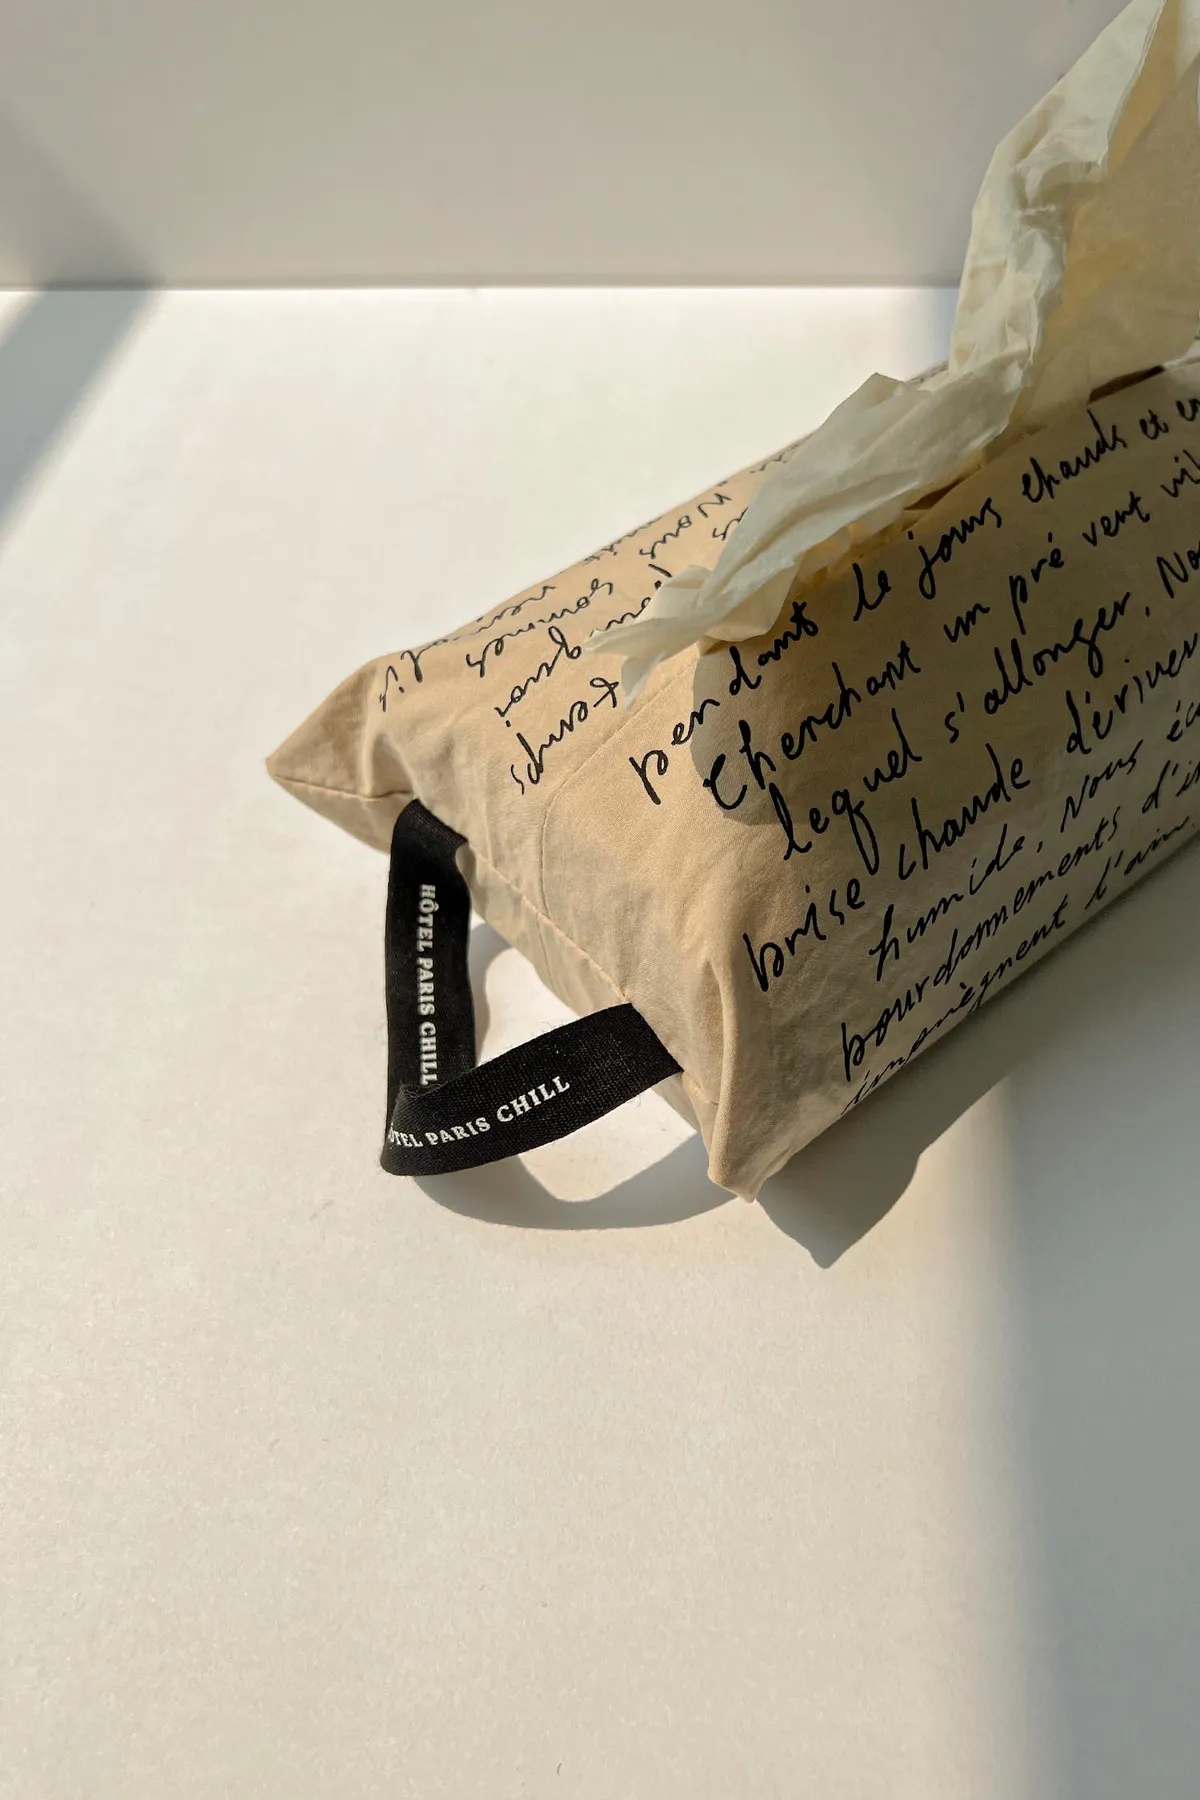 pendant le jours chauds et en
Cherchant un pré vert
lequel s'allonger. No
brise chaude dériver
humide. Nous
bourdonnements d'in
imprègnent l'air.
sommes
quoi
temps
HÔTEL PARIS CHILL
HÔTEL PARIS CHILL